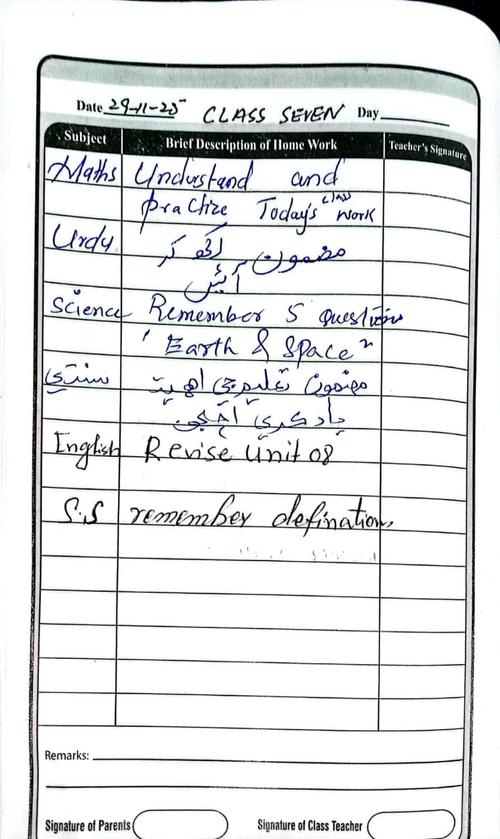 Date 29-11-25 CLASS SEVEN Day
Subject Brief Description of Home Work Teacher's Signature
Maths Understand and
practize Today's class work
Urdu مضمون لکھ کر
آئیں
Science Remember 5 Question
"Earth & Space"
سنڌي مضمون تعليم جي اهميت
ياد ڪري اچجي
English Revise Unit 08
S.S remember defination
Remarks:
Signature of Parents Signature of Class Teacher